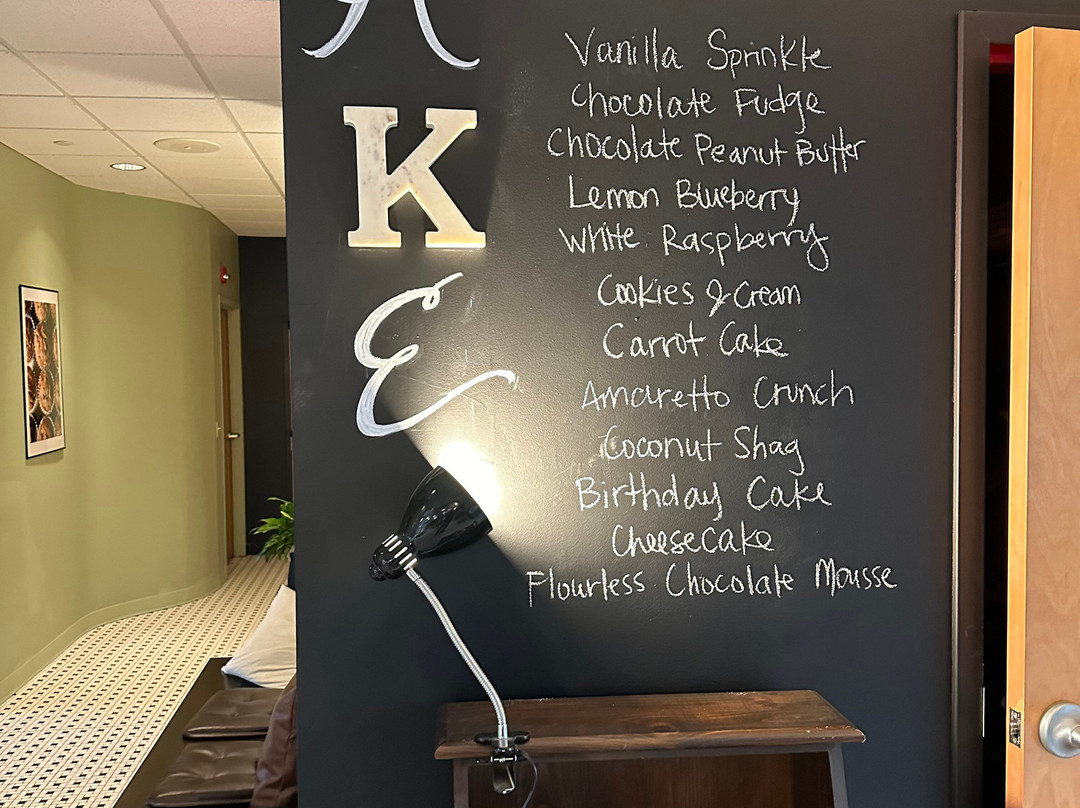 A
K
E
Vanilla Sprinkle
Chocolate Fudge
Chocolate Peanut Butter
Lemon Blueberry
White Raspberry
Cookies & Cream
Carrot Cake
Amaretto Crunch
Coconut Shag
Birthday Cake
Cheesecake
Flourless Chocolate Mousse